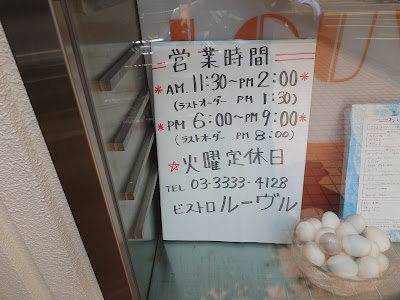 営業時間
*AM. 11:30~PM 2:00*
(ラストオーダー PM 1:30)
*PM 6:00~PM 9:00*
(ラストオーダー PM 8:00)
☆火曜定休日
TEL 03-3333-4128
ビストロ ルーヴル